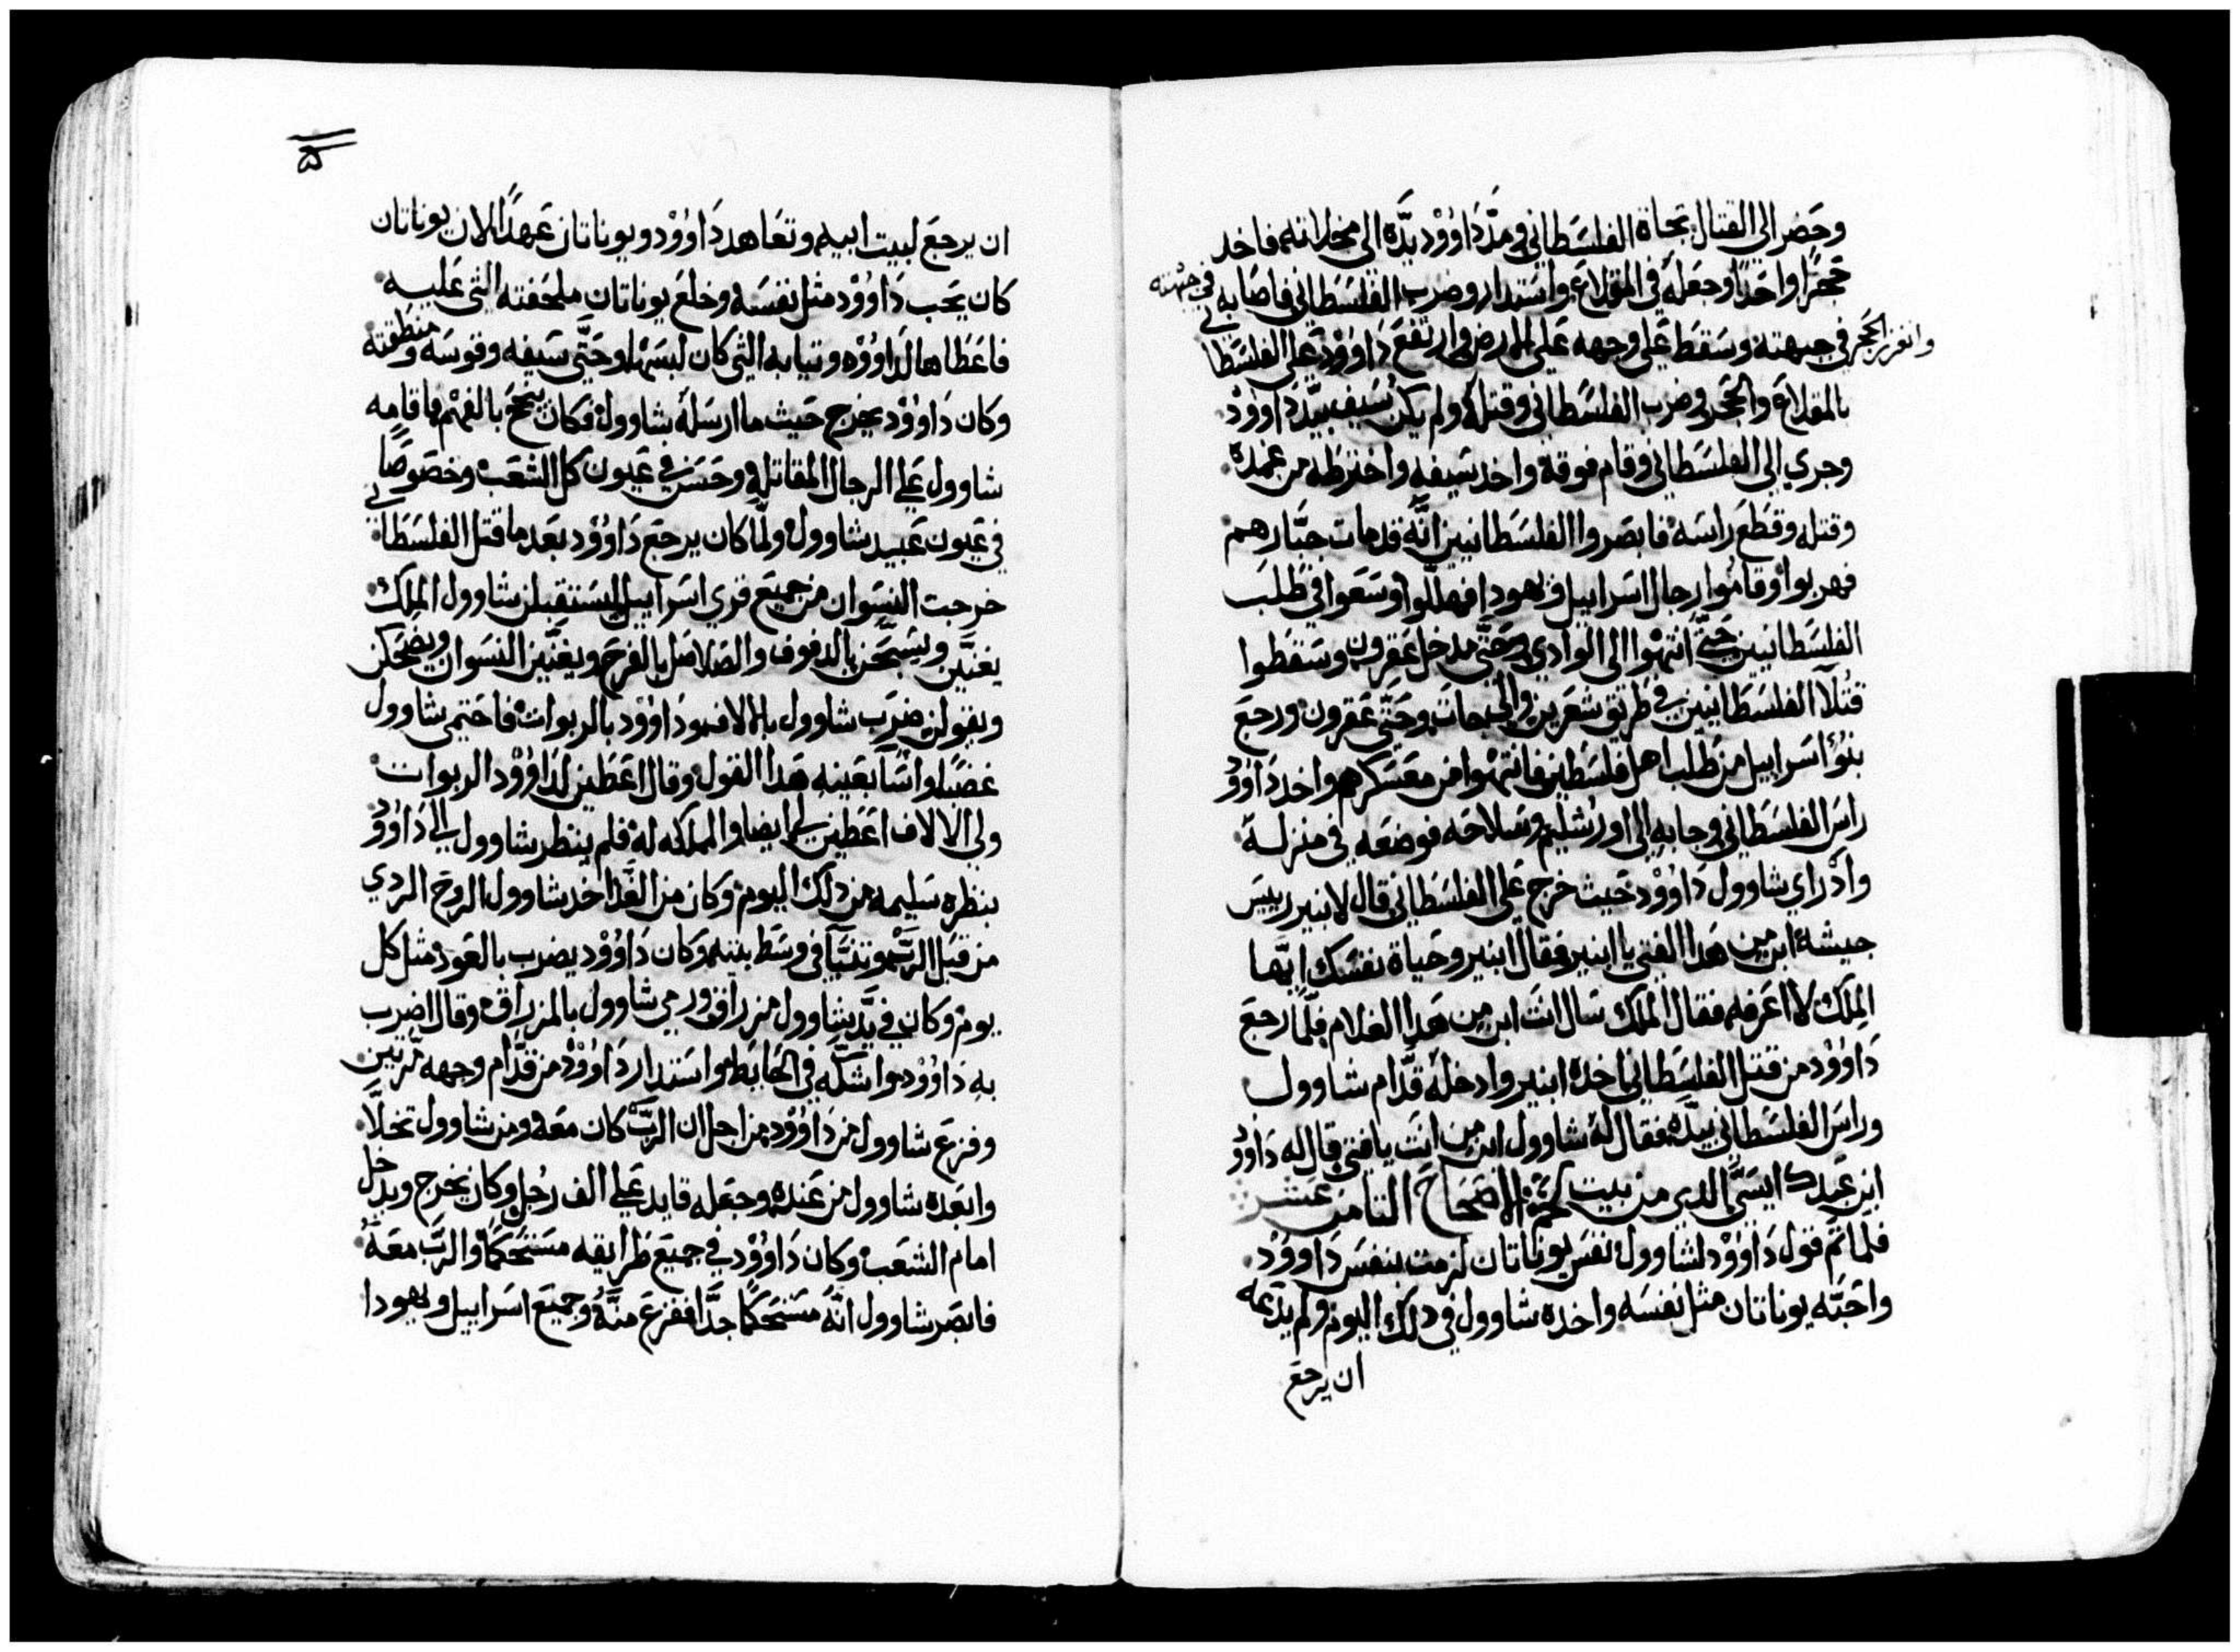 وحَضر الي القتال تجاة الفلسَطاني ومدَّ دَاوُوْد يدَّة الى مخلاته فاخد
حجَرًا واحَدًا وجَعَلهُ في المقلاع واستدار وضرب الفلسَطاني فاصَابه في جبهته
وانغرز الحَجَر في جبهته وسَقطَ عَلي وجهه عَلي الارض وارتفعَ دَاوُوْد عَلي الفلسَطاني
بالمقلاع والحَجَر وضرب الفلسَطاني وقتلهُ ولم يكن سَيف بيَّد دَاوُوْد
وجري الي الفلسَطاني وقام فوقهُ واخد سَيفه واخترطه من غمده
وقتله وقطَعَ راسَهُ فابصَروا الفلسَطانيين انَّهُ قد مات جبَّارهم
فهربوا وقاموا رجال اسَراييل ويهودا فهللّوا وسَعَوا في طلبَ
الفلسَطانيين حَتَّي انتهوا الى الوادي وحَتَّي مدخل عَقرون وسَقطوا
قتلآ الفلسَطانيين في طريق شعَرين والي جاتَ وحَتَّي عَقرون ورجعَ
بنوُا اسَراييل من طلب اهل فلسَطين فانتهوا من معَسَكرهم واخد دَاوُوْد
راسَ الفلسَطاني وجابه الى اورُشليم وسَلاحَه فوضعَه في منزلهُ
وادْ راي شاوول دَاوُوْد حَيث خرج عَلي الفلسَطاني قال لابنير رييسَ
جيشهُ ابن من هَدا الفتي يا ابنير فقال ابنير وحَياة نفسَك ايَّها
المِلَك لا اعَرفه فقال الملَك سَال انتَ ابن من هَدا الغلام فلَّما رجعَ
دَاوُوْد من قتل الفلسَطاني اخدهُ ابنير وادخلهُ قدَّام شاوول
وراسَ الفلسَطاني بيدَّه فقال لهُ شاوول ابن من انتَ يا فتي قال له دَاوُوْد
ابن عَبدك ايسَّي الدي من بيت لحَم الاصحَاحَ التامن عَشر
فلما تَم قول دَاوُوْد لشاوول نفسَ يوناتان لزمت بنفسَ دَاووُد
واحَبَّه يوناتان مثل نفسَه واخده شاوول في دلك اليوم ولم يدَعَه
ان يرجعَ
ان يرجعَ لبيت ابيه وتعَاهد دَاوُوْد ويوناتان عَهدًا لان يوناتان
كان يحَب دَاوُوْد مثل نفسَهُ وخلعَ يوناتان ملحَفته التي عَليه
فاعَطاها لدَاوُوْد وتيابه التي كان لبسَها وحَتَّي سَيفه وقوسَه ومنطقته
وكان دَاوُوْد يخرج حَيث ما ارسَلهُ شاوول فكان ينجحَ بالفهْم فاقامه
شاوول عَلي الرجال المقاتله وحَسَن في عَيون كل الشعَب وخصَوصًا
في عَيون عَبيد شاوول ولمَّا كان يرجعَ دَاوُوْد بعَد ما قتل الفلسَطاني
خرجت النسَوان من جميَعَ قري اسَراييل ليسَتقبلن شاوول الملِك
يغنيَّن ويسَبّحَن بالدفوف والصَلاصَل بالفرحَ ويغنَّين النسَوان ويضحَكن
ويقولن ضرَب شاوول بالالاف ودَاوُوْد بالربوات فاحَتمي شاوول
غضبًا واسَآ بعَينه هَدا القول وقال اعَطين لدَاوُوْد الربوات
ولى الالاف اعَطين لي ايضا والمملكه لهُ فلم ينظر شاوول الى دَاوُوْد
بنظره سَليمه من دلك اليوم وكان من الغد اخد شاوول الروحَ الردي
من قبَل الربّ وتنبَّآ في وسَط بيته وكان دَاوُوْد يضرب بالعَود مثل كل
يوم وكان في يدَّ شاوول مزراق ورمي شاوول بالمزراق وقال اضرب
به دَاوُوْد واشكّه في الحَايط واستدار دَاوُوْد من قدَّام وجهه مرَّتين
وفزع شاوول من دَاوُوْد من اجل ان الربّ كان معَه ومن شاوول تخلاَّ
وابعَده شاوول من عَنده وجعَله قايد عَلي الف رجُل وكان يخرج ويدخل
امام الشعَب وكان دَاوُوْد في جميعَ طرايقه مسَتحَكمًا والربّ معَهُ
فابصَر شاوول انَّهُ مسَتحَكمًا جدَّا ففزعَ منَّهُ وجميَع اسَراييل ويهودا